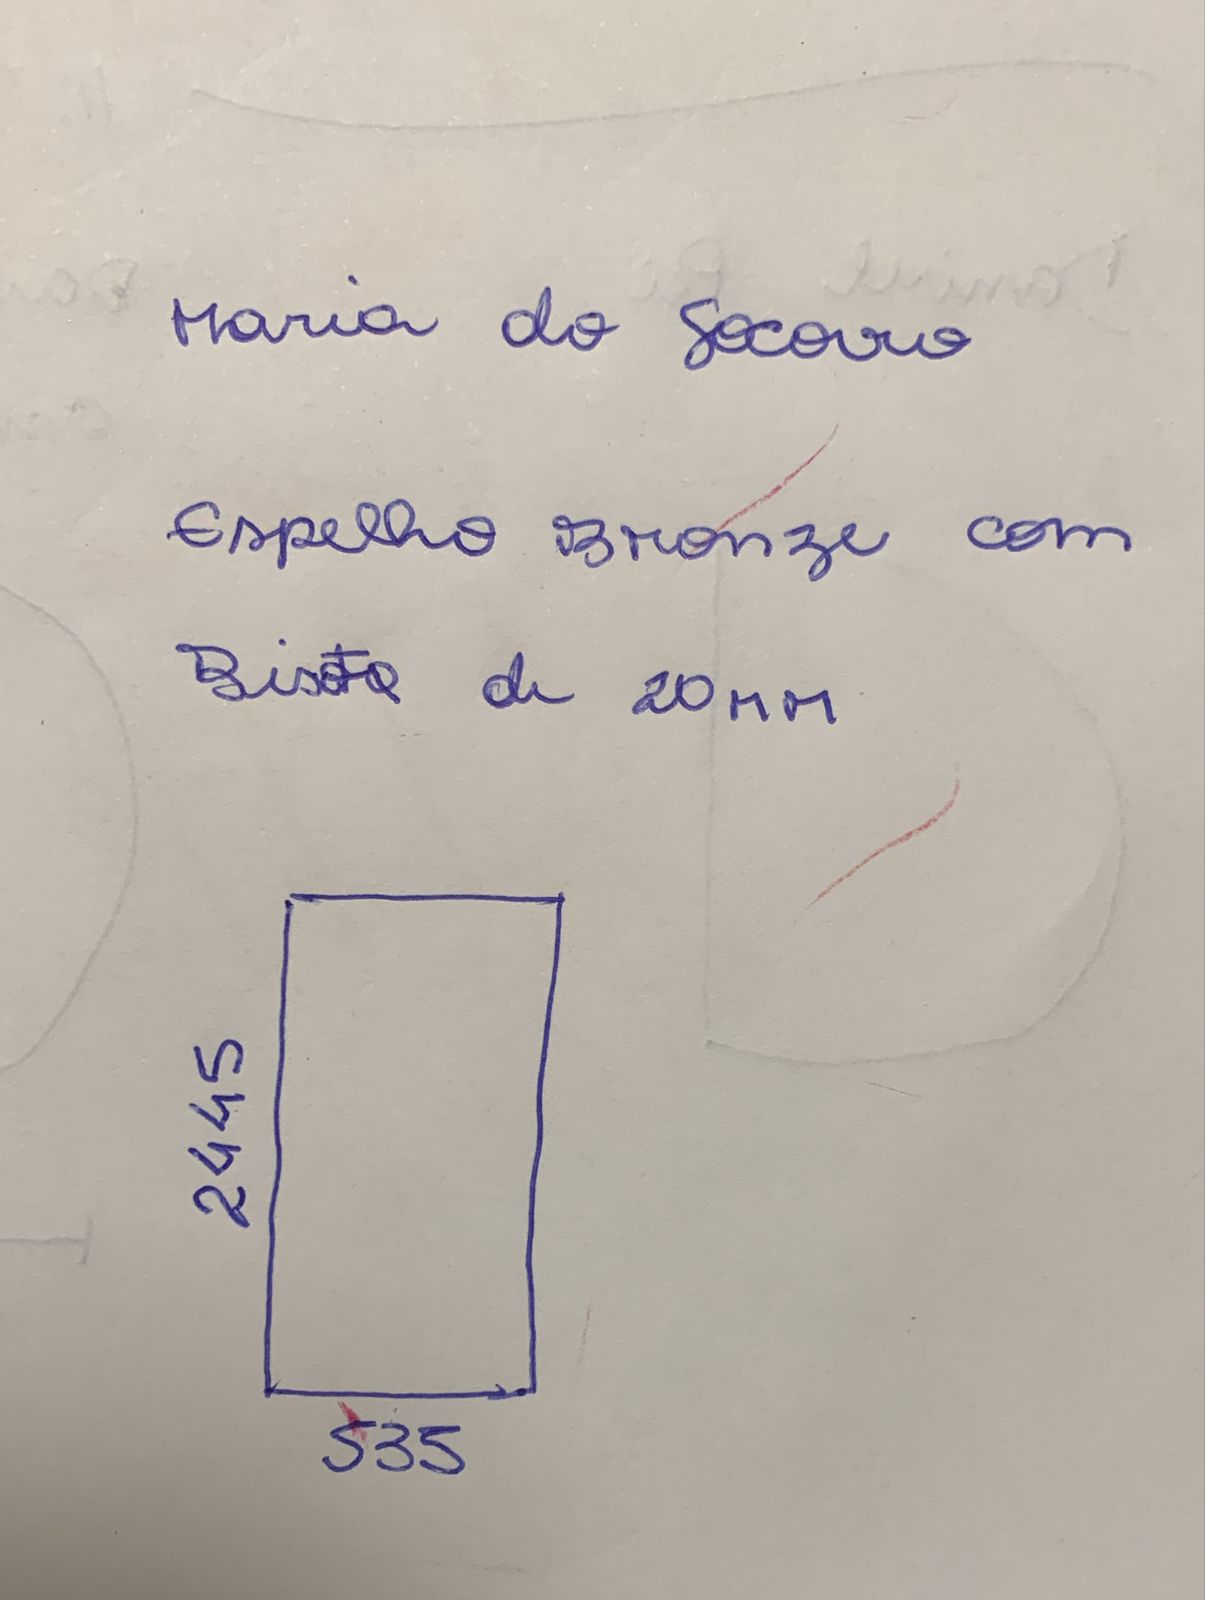 Maria do Socorro
Espelho Bronze com
Bisote de 20mm
2445
535